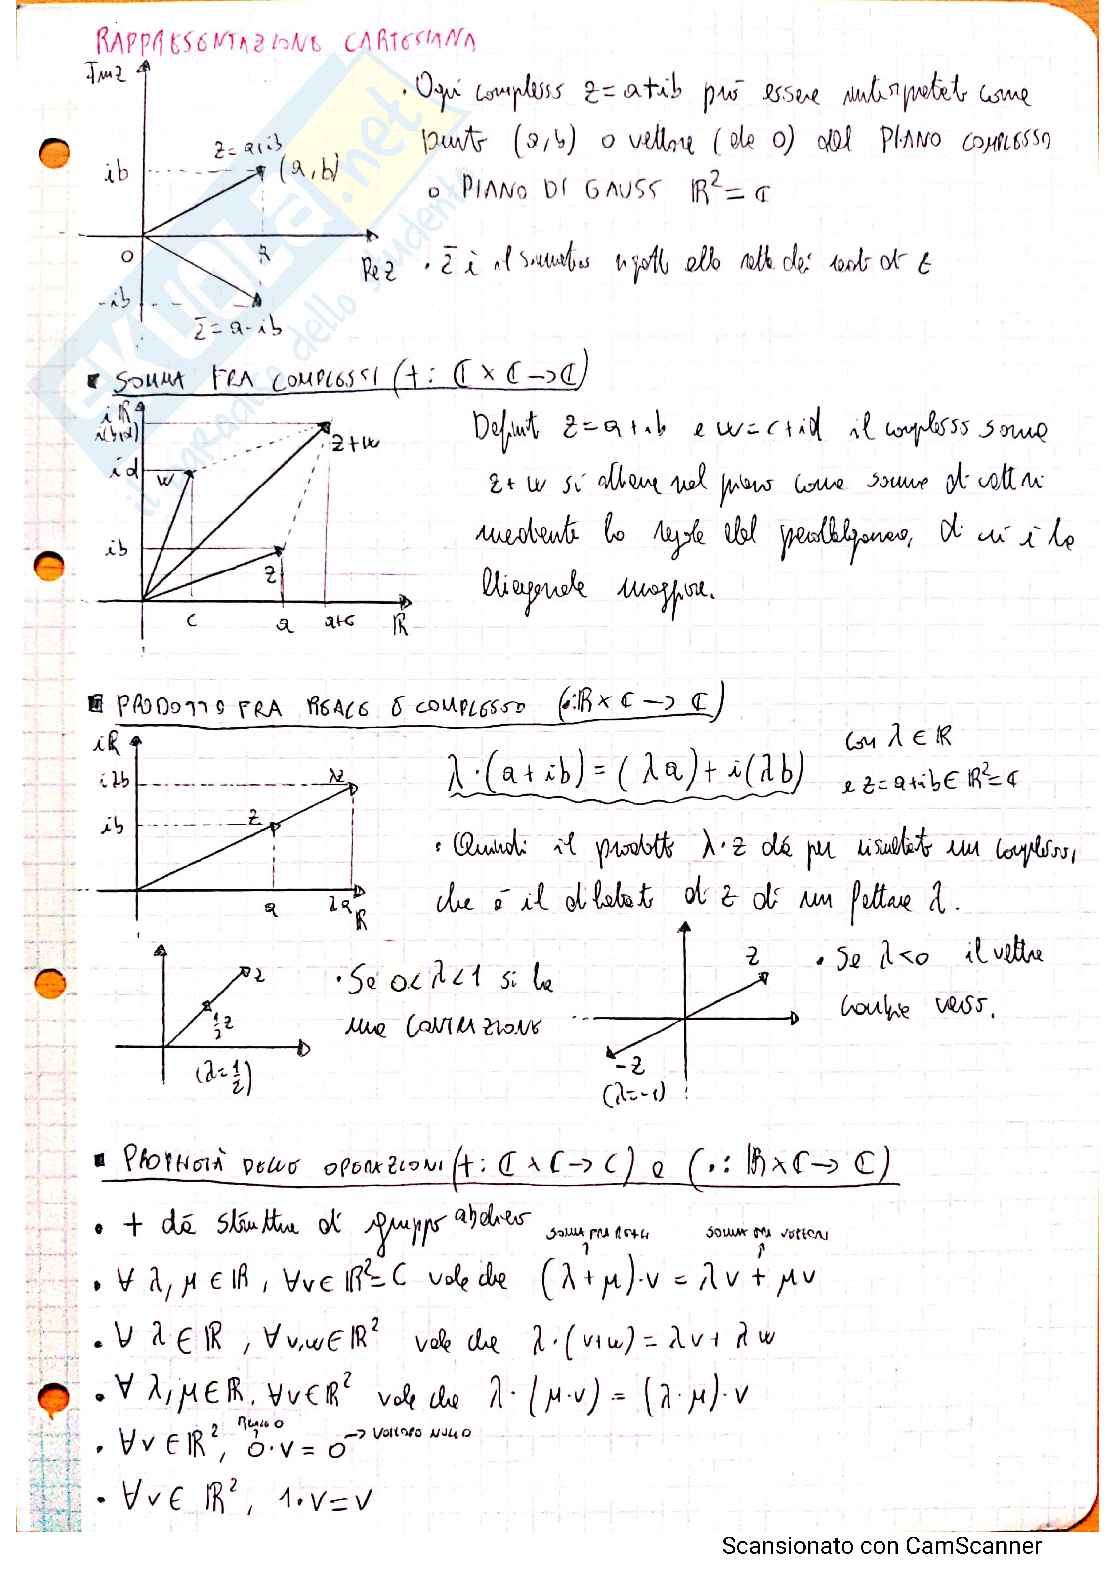 RAPPRESENTAZIONE CARTESIANA
Im z
z=a+ib
(a,b)
ib
0
a
Re z
-ib
z̄=a-ib
· Ogni complesso z=a+ib può essere interpretato come
punto (a,b) o vettore (da 0) del PIANO COMPLESSO
o PIANO DI GAUSS ℝ²=ℂ
· z̄ è il simmetrico rispetto alla retta dei reali di z
SKUOLA.net
il paradiso dello studente
▪ SOMMA FRA COMPLESSI (+: ℂ×ℂ→ℂ)
iℝ
i(b+d)
id
ib
w
z+w
z
c
a
a+c
ℝ
Definiti z=a+ib e w=c+id il complesso somma
z+w si ottiene nel piano come somma di vettori
mediante la regola del parallelogramma, di cui è la
diagonale maggiore.
▪ PRODOTTO FRA REALE E COMPLESSO (·:ℝ×ℂ→ℂ)
iℝ
iλb
ib
λz
z
a
λa
ℝ
λ·(a+ib)=(λa)+i(λb)
con λ∈ℝ
e z=a+ib∈ℝ²=ℂ
· Quindi il prodotto λ·z dà per risultato un complesso,
che è il dilatato di z di un fattore λ.
z
½z
(λ=½)
· Se 0<λ<1 si ha
una CONTRAZIONE
z
-z
(λ=-1)
· Se λ<0 il vettore
cambia verso.
▪ PROPRIETÀ DELLE OPERAZIONI (+: ℂ×ℂ→ℂ) e (·: ℝ×ℂ→ℂ)
· + dà struttura di gruppo abeliano
SOMMA FRA REALI
SOMMA FRA VETTORI
· ∀ λ,μ∈ℝ, ∀v∈ℝ²=C vale che (λ+μ)·v=λv+μv
· ∀ λ∈ℝ, ∀v,w∈ℝ² vale che λ·(v+w)=λv+λw
· ∀ λ,μ∈ℝ, ∀v∈ℝ² vale che λ·(μ·v)=(λ·μ)·v
· ∀v∈ℝ², 0·v=0 → VETTORE NULLO
· ∀v∈ℝ², 1·v=v
Scansionato con CamScanner